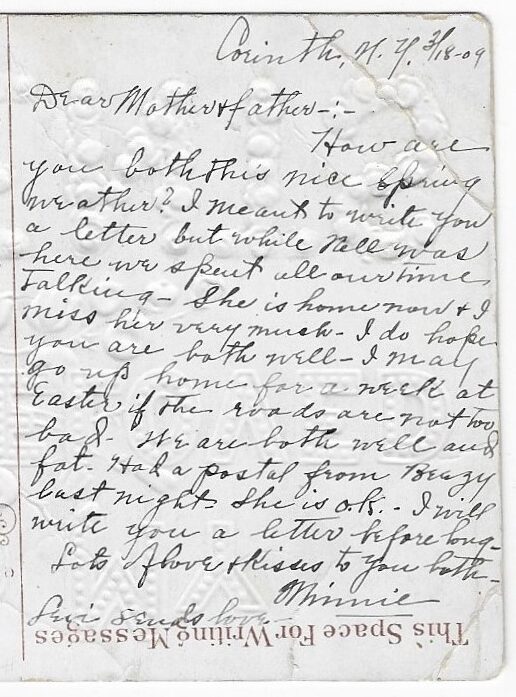 Corinth, N.Y. 3/18-09
Dear Mother & father -:-
How are
you both this nice Spring
weather? I meant to write you
a letter but while Nell was
here we spent all our time
talking - She is home now & I
miss her very much - I do hope
you are both well - I may
go up home for a week at
Easter if the roads are not too
bad. We are both well and
fat. Had a postal from
last night. She is o.k. - I will
write you a letter before long -
Lots of love & kisses to you both -
Minnie
Levi sends love -
This Space For Writing Messages